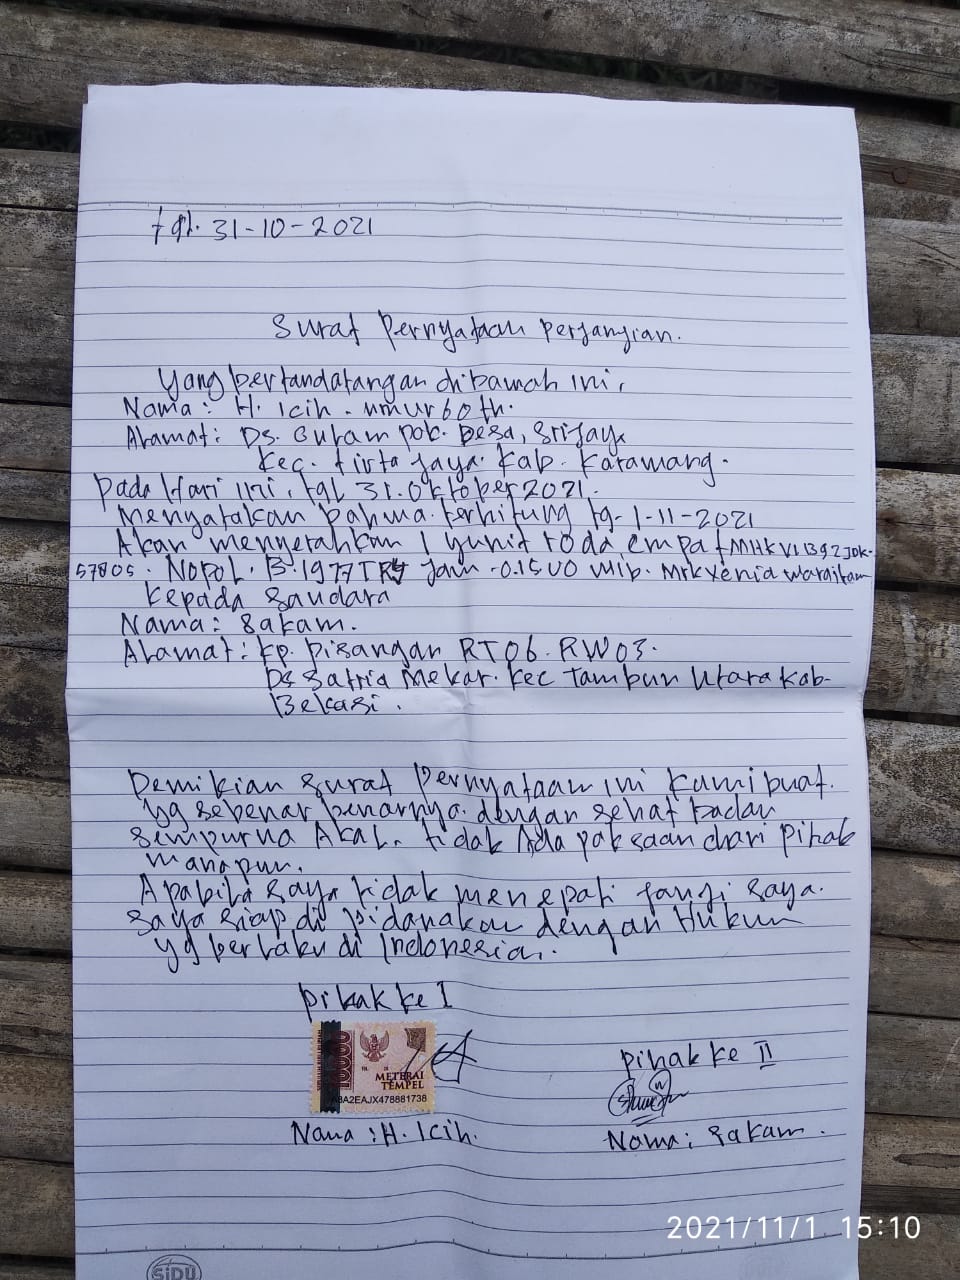 tgl. 31-10-2021
Surat pernyataan perjanjian.
Yang bertandatangan dibawah ini,
Nama: H. Icih. umur 60 th.
Alamat: Ds. Bulam pok. Desa, Srijaya
Kec. tirta jaya. Kab. Karawang.
Pada Hari ini, tgl 31. Oktober 2021.
Menyatakan bahwa. terhitung tg- 1-11-2021
Akan menyerahkan 1 yunit roda empat
57805. Nopol. B. 1977 Jam -0.1500 wib. Mrk xenia warna itam
Kepada Saudara
Nama: Sakam.
Alamat: Kp. pisangan RT06. RW03.
Ds Satria Mekar. Kec Tambun Utara Kab-
Bekasi.
Demikian surat pernyataan ini kami buat.
yg sebenar benarnya. dengan sehat badan
sempurna Akal. tidak Ada paksaan dari pihak
manapun.
Apabila saya tidak menepati janji saya.
saya siap di pidanakan dengan Hukum
yg berlaku di Indonesia.
pihak ke I
10000
METERAI
TEMPEL
A2EAJX478881738
Nama: H. Icih.
pihak ke II
Nama: Sakam.
SiDU
2021/11/1 15:10